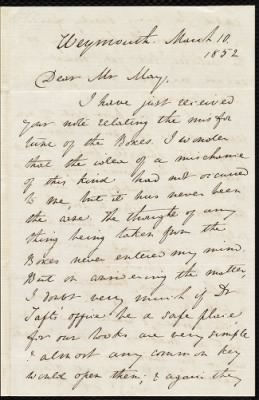 Weymouth March 10,
1852
Dear Mr May,
I have just received
your note relating the misfor
tune of the Boxes. I wonder
that the idea of a mischance
of this kind had not occured
to me, but it has never been
the case. The thought of any
thing being taken from the
Boxes never entered my mind.
But on considering the matter,
I doubt very much if Dr
Tafts' office be a safe place
for our books are very simple
& almost any common key
would open them; & again they